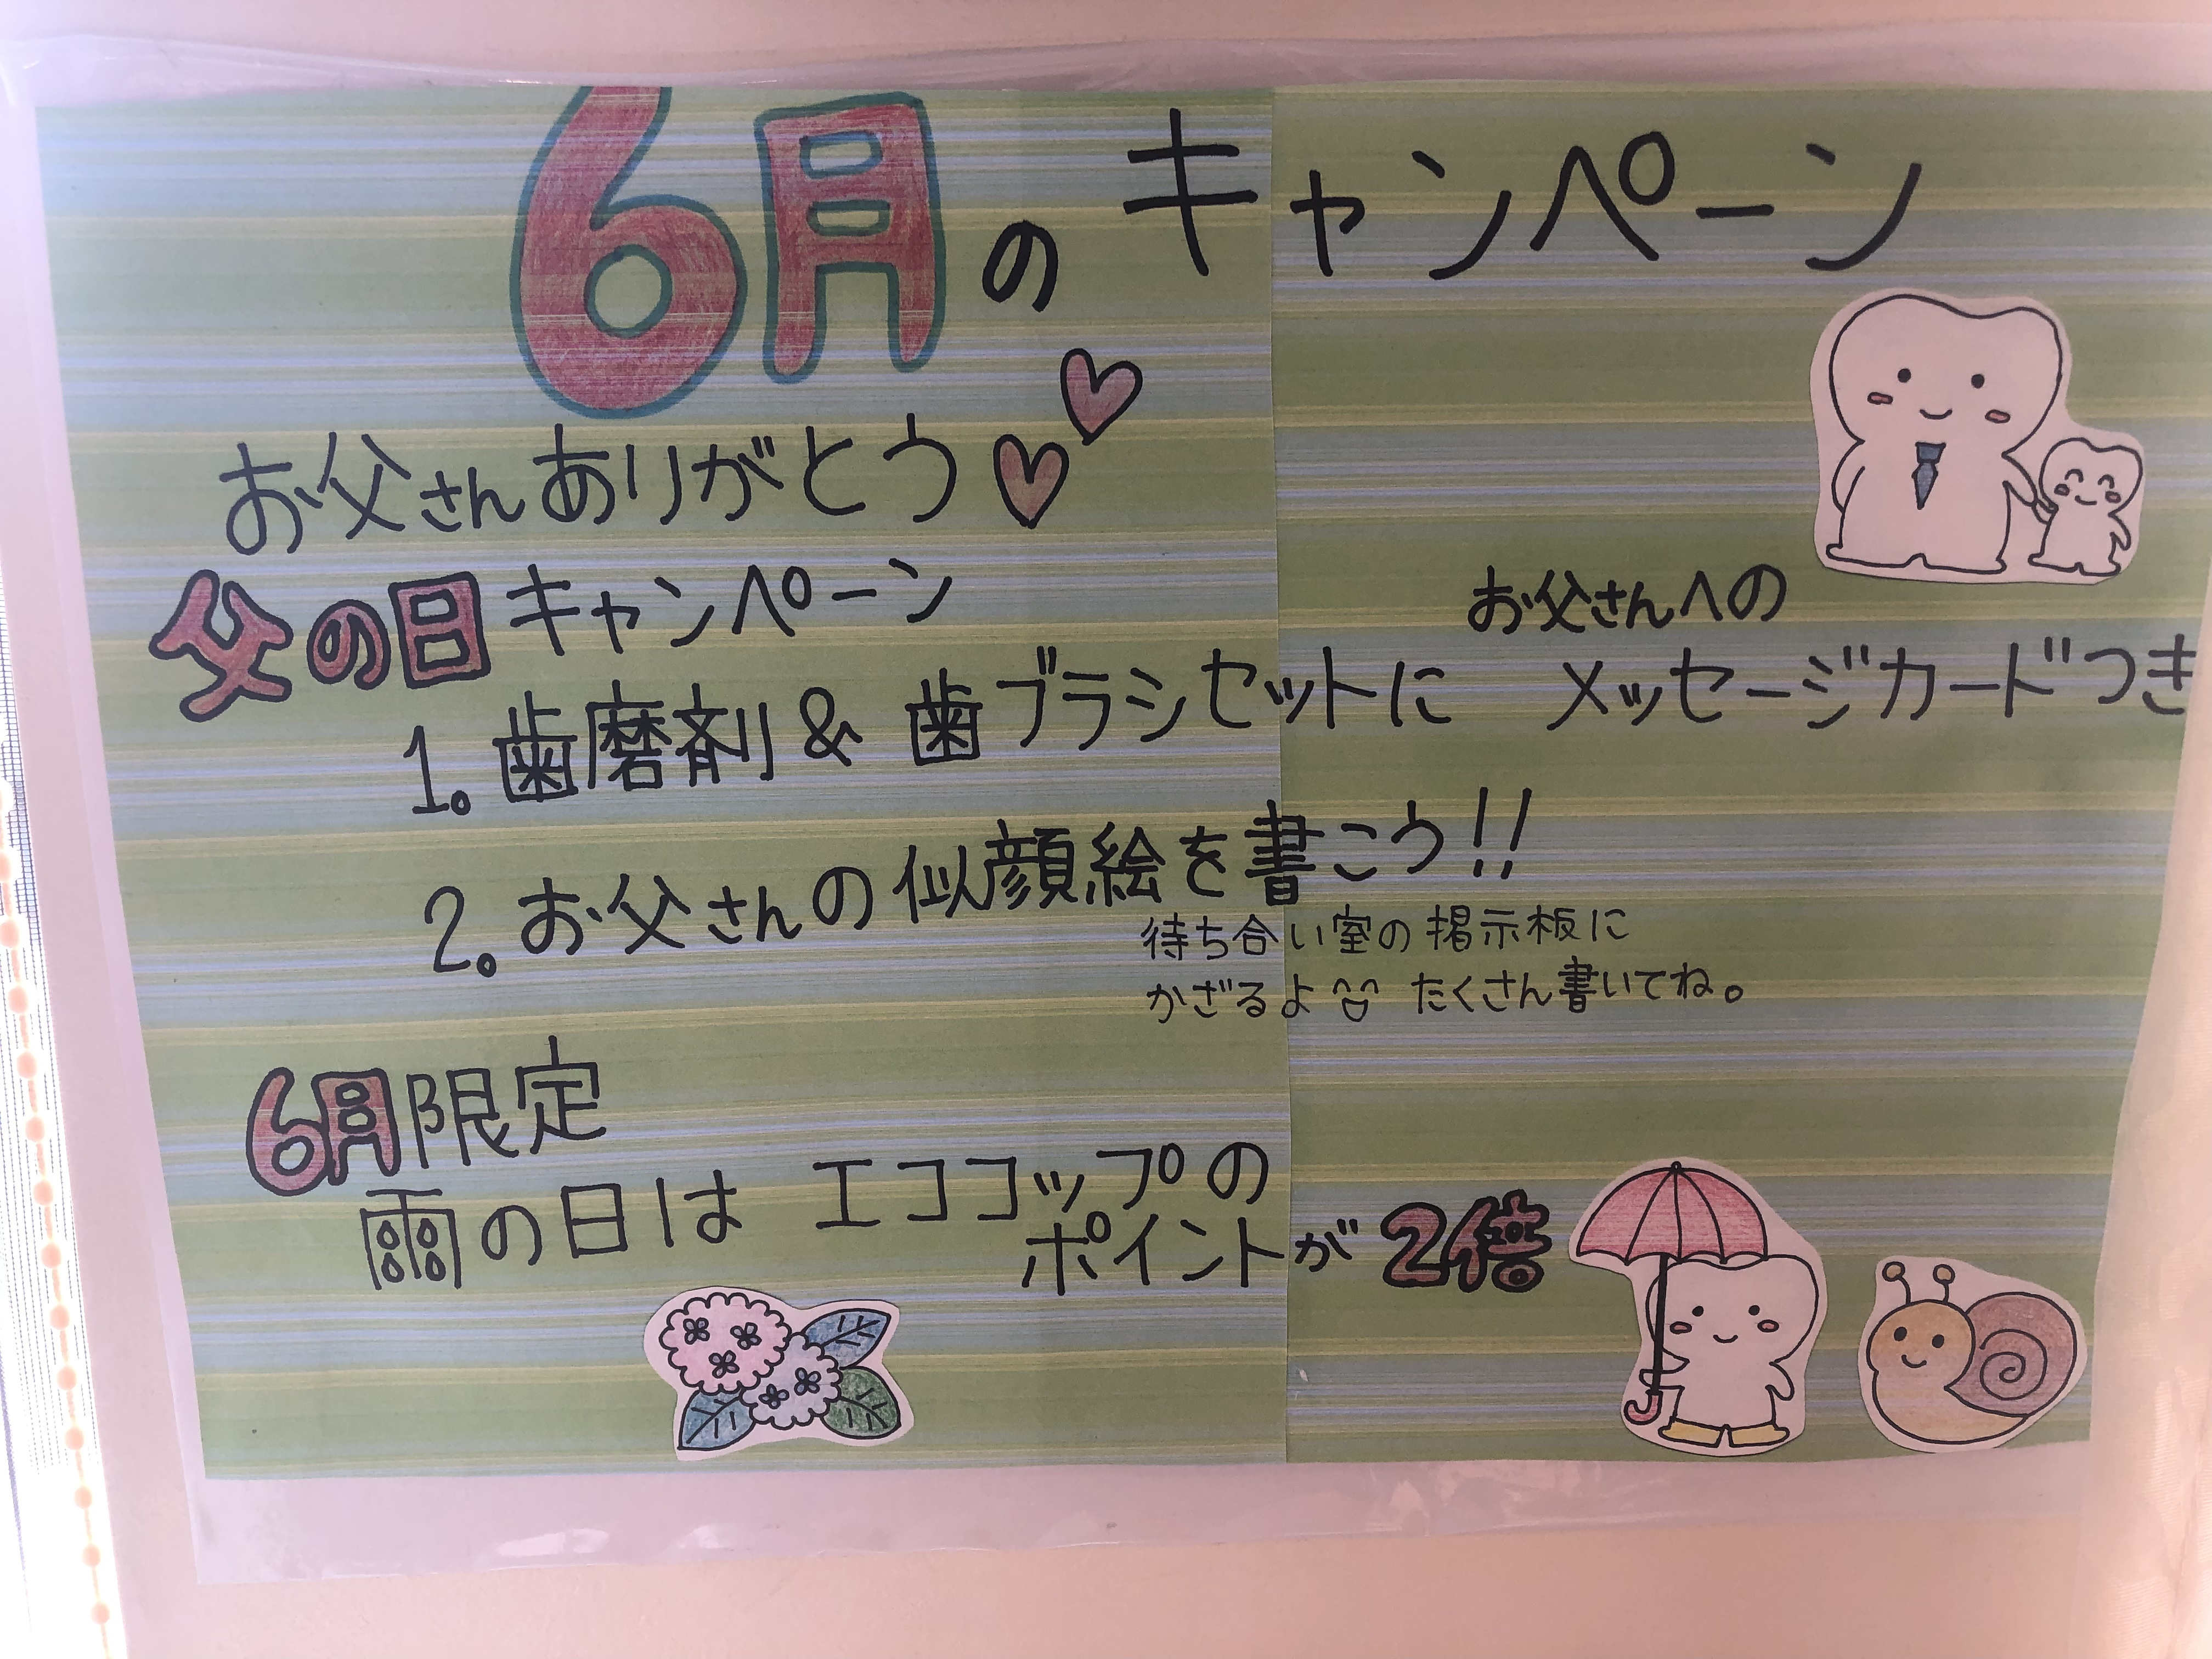 6月のキャンペーン
お父さんありがとう♡♡
父の日キャンペーン
お父さんへの
1. 歯磨剤&歯ブラシセットに メッセージカードつき
2. お父さんの似顔絵を書こう!!
待ち合い室の掲示板に
かざるよ たくさん書いてね。
6月限定
雨の日は エココップの
ポイントが2倍